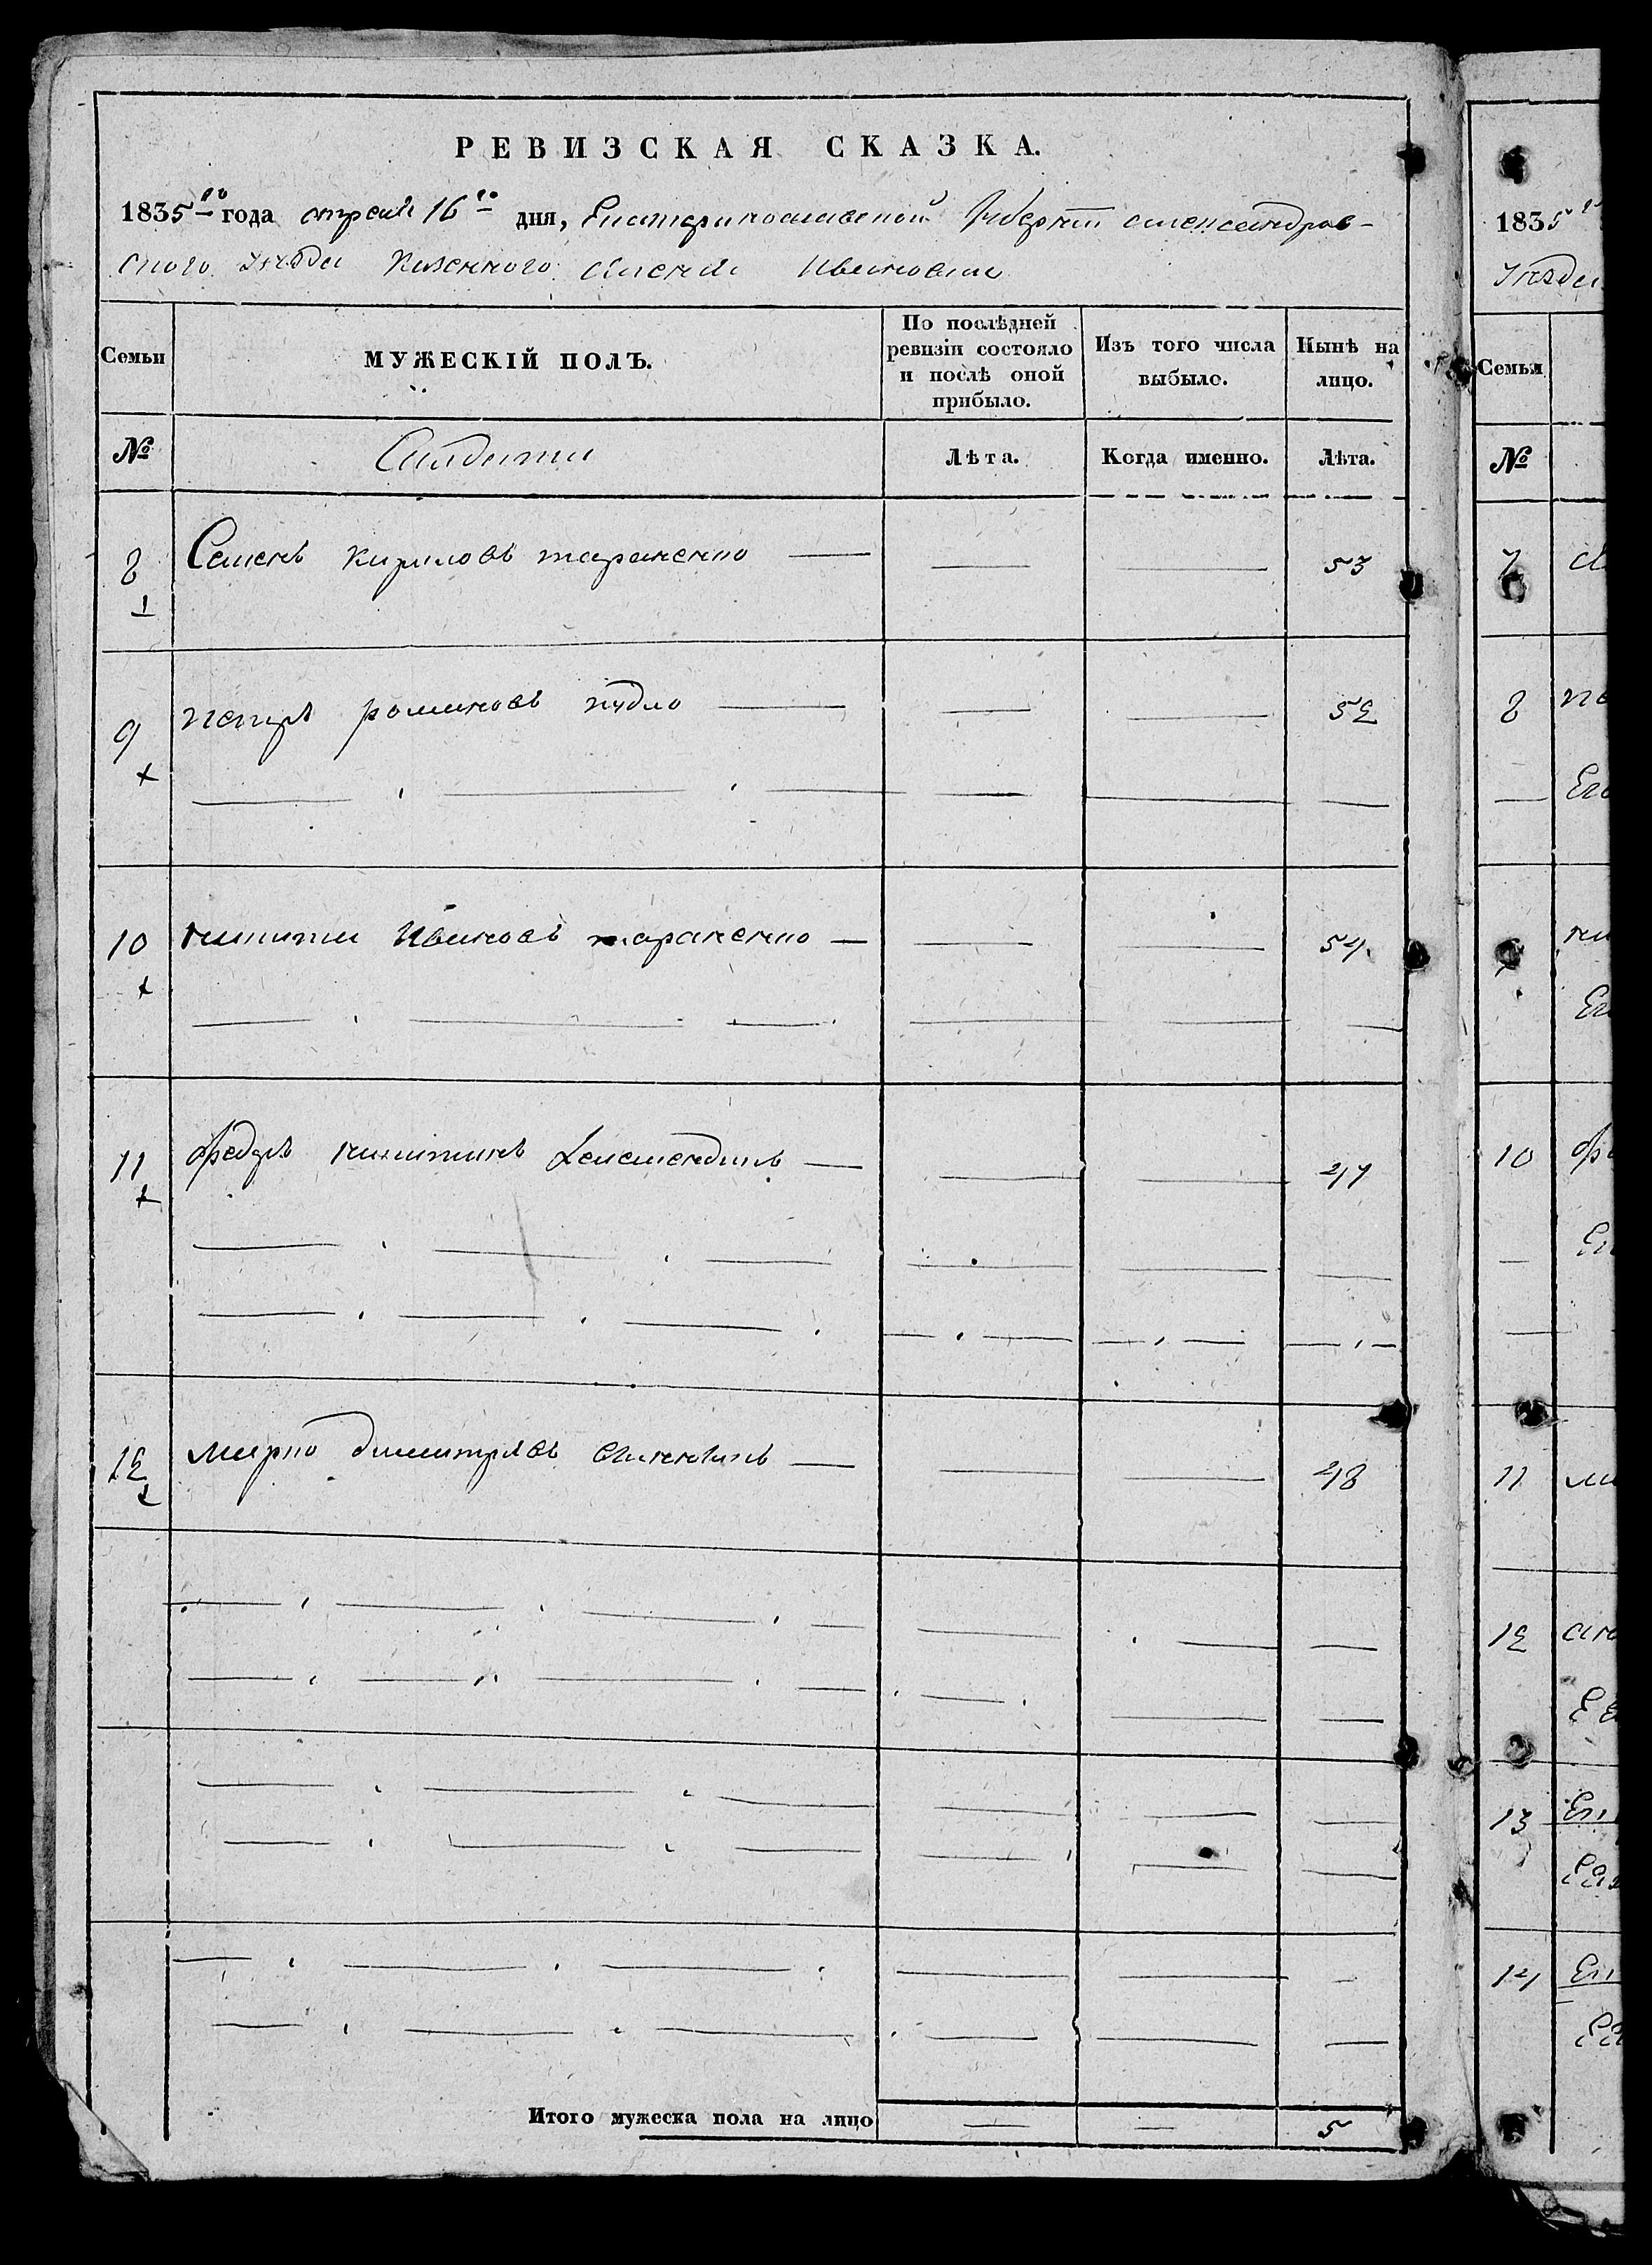 РЕВИЗСКАЯ СКАЗКА.
1835го года апреля 16го дня, Екатеринославской Губернии александров-
ского уезда Казенного селения Ивановки
Семьи
МУЖЕСКІЙ ПОЛЪ.
По послѣдней ревизіи состояло и послѣ оной прибыло.
Изъ того числа выбыло.
Нынѣ на лицо.
№
Салдаты
Лѣта.
Когда именно.
Лѣта.
8 Семенъ кириловъ тараненко — — — 53
9 петръ романовъ пудло — — — 52
10 никита Ивановъ тараненко — — — 54
11 федоръ никитинъ — — — 47
12 марко димитріевъ — — — 48
Итого мужеска пола на лицо — — 5
1835
Уезда
Семьи
№
7
8
Его
10
11
12
13
14